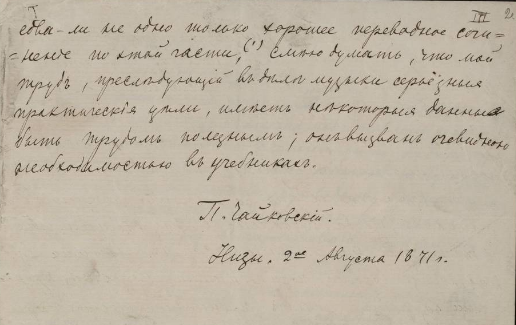 I III 2.
едва-ли не одно только хорошее переводное сочи-
=ненiе по этой части,(¹) смѣю думать, что мой
трудъ, преслѣдующiй въ дѣлѣ музыки серьёзныя
практическiя цѣли, имѣетъ нѣкоторыя данныя
быть трудомъ полезнымъ; онъ вызванъ очевидною
необходимостью въ учебникахъ.
П. Чайковскiй.
Низы. 2ое Августа 1871 г.